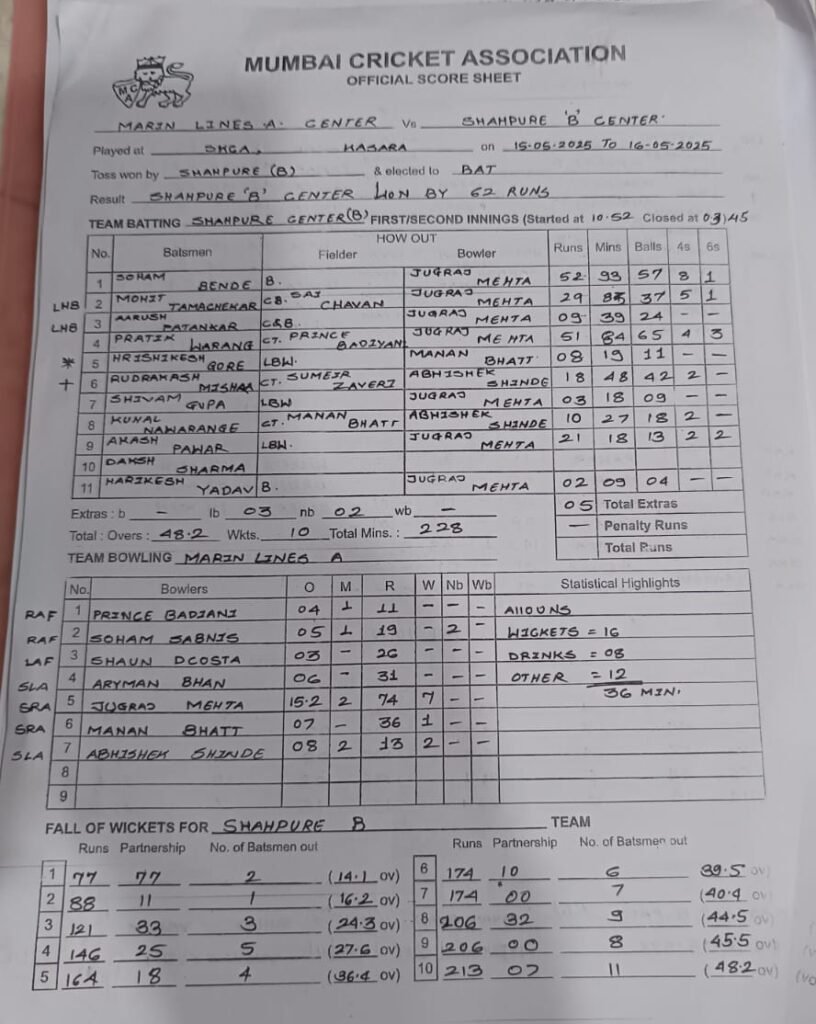 MCA
MUMBAI CRICKET ASSOCIATION
OFFICIAL SCORE SHEET
MARIN LINES A. CENTER Vs SHAHPURE 'B' CENTER.
Played at DMCA, KASARA on 15-05-2025 TO 16-05-2025
Toss won by SHAHPURE (B) & elected to BAT
Result SHAHPURE 'B' CENTER WON BY 62 RUNS
TEAM BATTING SHAHPURE CENTER (B) FIRST/SECOND INNINGS (Started at 10.52 Closed at 03)45
HOW OUT
No. Batsmen Fielder Bowler Runs Mins Balls 4s 6s
1 SOHAM BENDE B. JUGRAJ MEHTA 52 99 57 8 1
LHB 2 MOHIT TAMACHEKAR CB. SAI CHAVAN JUGRAJ MEHTA 29 85 37 5 1
LHB 3 AARUSH PATANKAR C&B. JUGRAJ MEHTA 09 39 24 - -
4 PRATIK WARANG CT. PRINCE BADIYANI JUGRAJ MEHTA 51 84 65 4 3
* 5 HRISHIKESH GORE LBW. MANAN BHATT 08 19 11 - -
+ 6 RUDRAKASH MISHAA CT. SUMEIR ZAVERI ABHISHEK SHINDE 18 48 42 2 -
7 SHIVAM GUPA LBW JUGRAJ MEHTA 03 18 09 - -
8 KUNAL NAWARANGE CT. MANAN BHATT ABHISHEK SHINDE 10 27 18 2 -
9 AKASH PAWAR LBW. JUGRAJ MEHTA 21 18 13 2 2
10 DAKSH SHARMA
11 HARIKESH YADAV B. JUGRAJ MEHTA 02 09 04 - -
Extras : b - lb 03 nb 02 wb - 05 Total Extras
Total : Overs : 48.2 Wkts. 10 Total Mins. : 228 - Penalty Runs
TEAM BOWLING MARIN LINES A Total Runs
No. Bowlers O M R W Nb Wb Statistical Highlights
RAF 1 PRINCE BADIANI 04 1 11 - - - AllOUNS
RAF 2 SOHAM SABNIS 05 1 19 - 2 - WICKETS = 16
LAF 3 SHAUN DCOSTA 03 - 26 - - - DRINKS = 08
SLA 4 ARYMAN BHAN 06 - 31 - - - OTHER = 12
SRA 5 JUGRAJ MEHTA 15.2 2 74 7 - - 36 MIN.
SRA 6 MANAN BHATT 07 - 36 1 - -
SLA 7 ABHISHEK SHINDE 08 2 13 2 - -
8
9
FALL OF WICKETS FOR SHAHPURE B TEAM
Runs Partnership No. of Batsmen out Runs Partnership No. of Batsmen out
1 77 77 2 (14.1 ov) 6 174 10 6 39.5 ov)
2 88 11 1 (16.2 ov) 7 174 00 7 (40.4 ov)
3 121 33 3 (24.3 ov) 8 206 32 9 (44.5 ov)
4 146 25 5 (27.6 ov) 9 206 00 8 (45.5 ov)
5 164 18 4 (36.4 ov) 10 213 07 11 (48.2 ov)